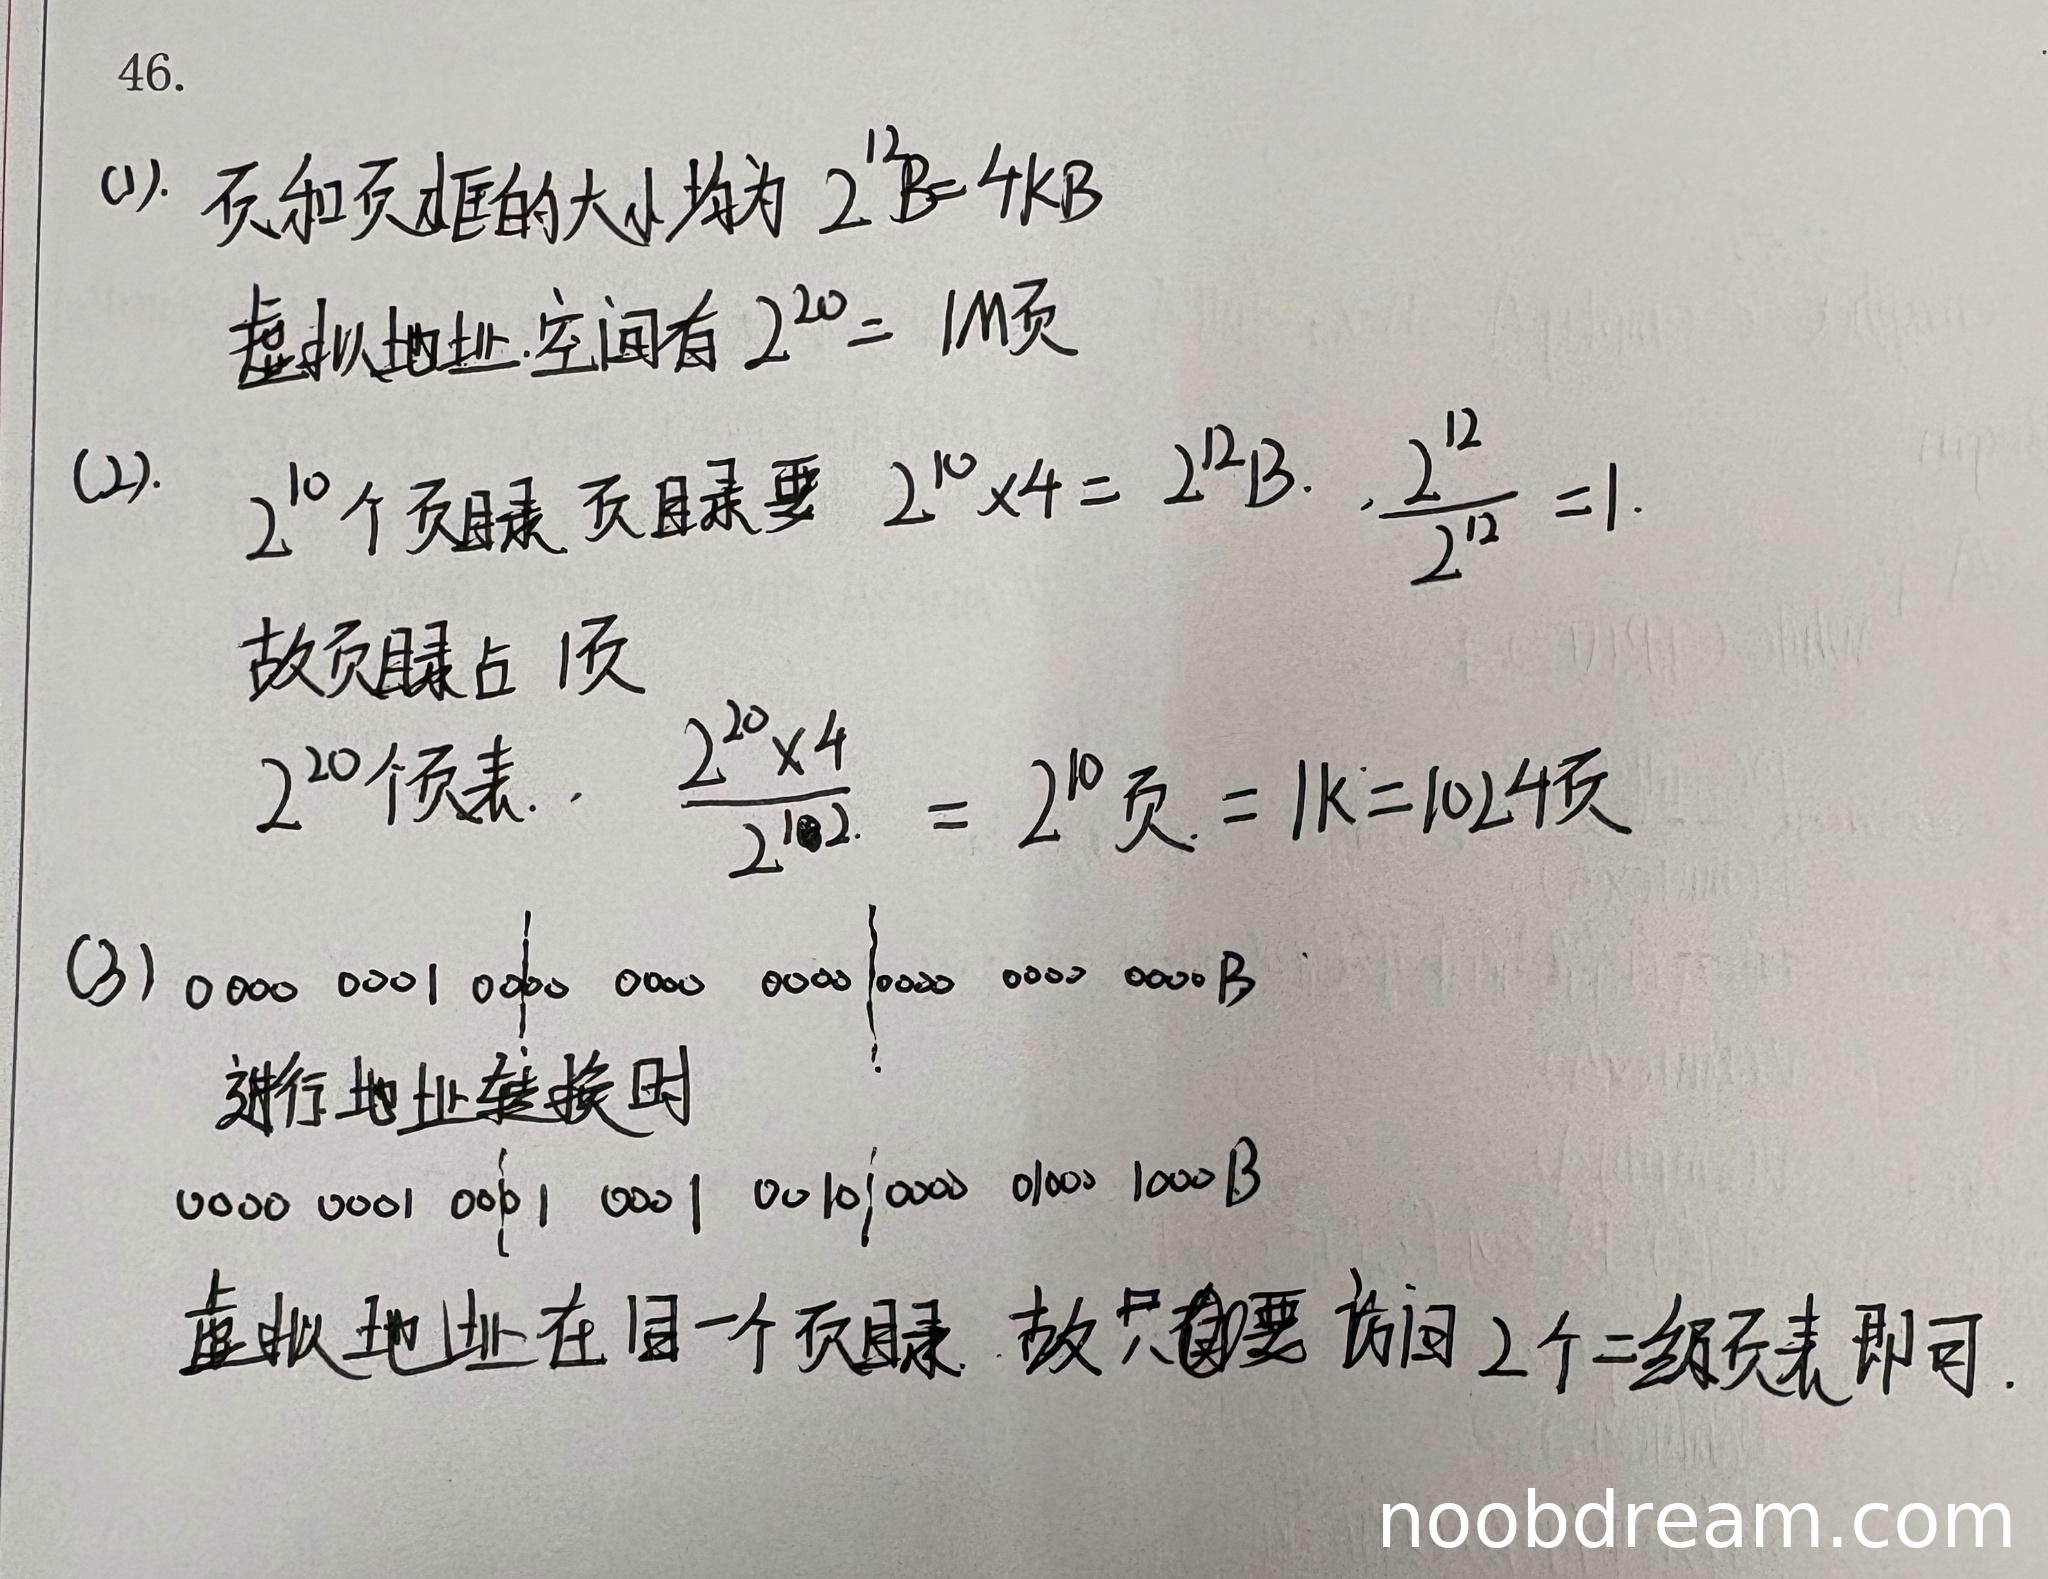 46.
(1). 页和页框的大小均为 2¹²B=4KB
虚拟地址空间有 2²⁰ = 1M页
(2). 2¹⁰个页目录 页目录要 2¹⁰×4 = 2¹²B. 2¹²/2¹² =1.
故页目录占 1页
2²⁰个页表. (2²⁰×4)/2¹² = 2¹⁰页 = 1K=1024页
(3) 0000 0001 0000 0000 0000 0000 0000 0000B
进行地址转换时
0000 0001 0001 0001 0010 0000 01000 1000B
虚拟地址在同一个页目录 故只需要访问2个二级页表即可.
noobdream.com